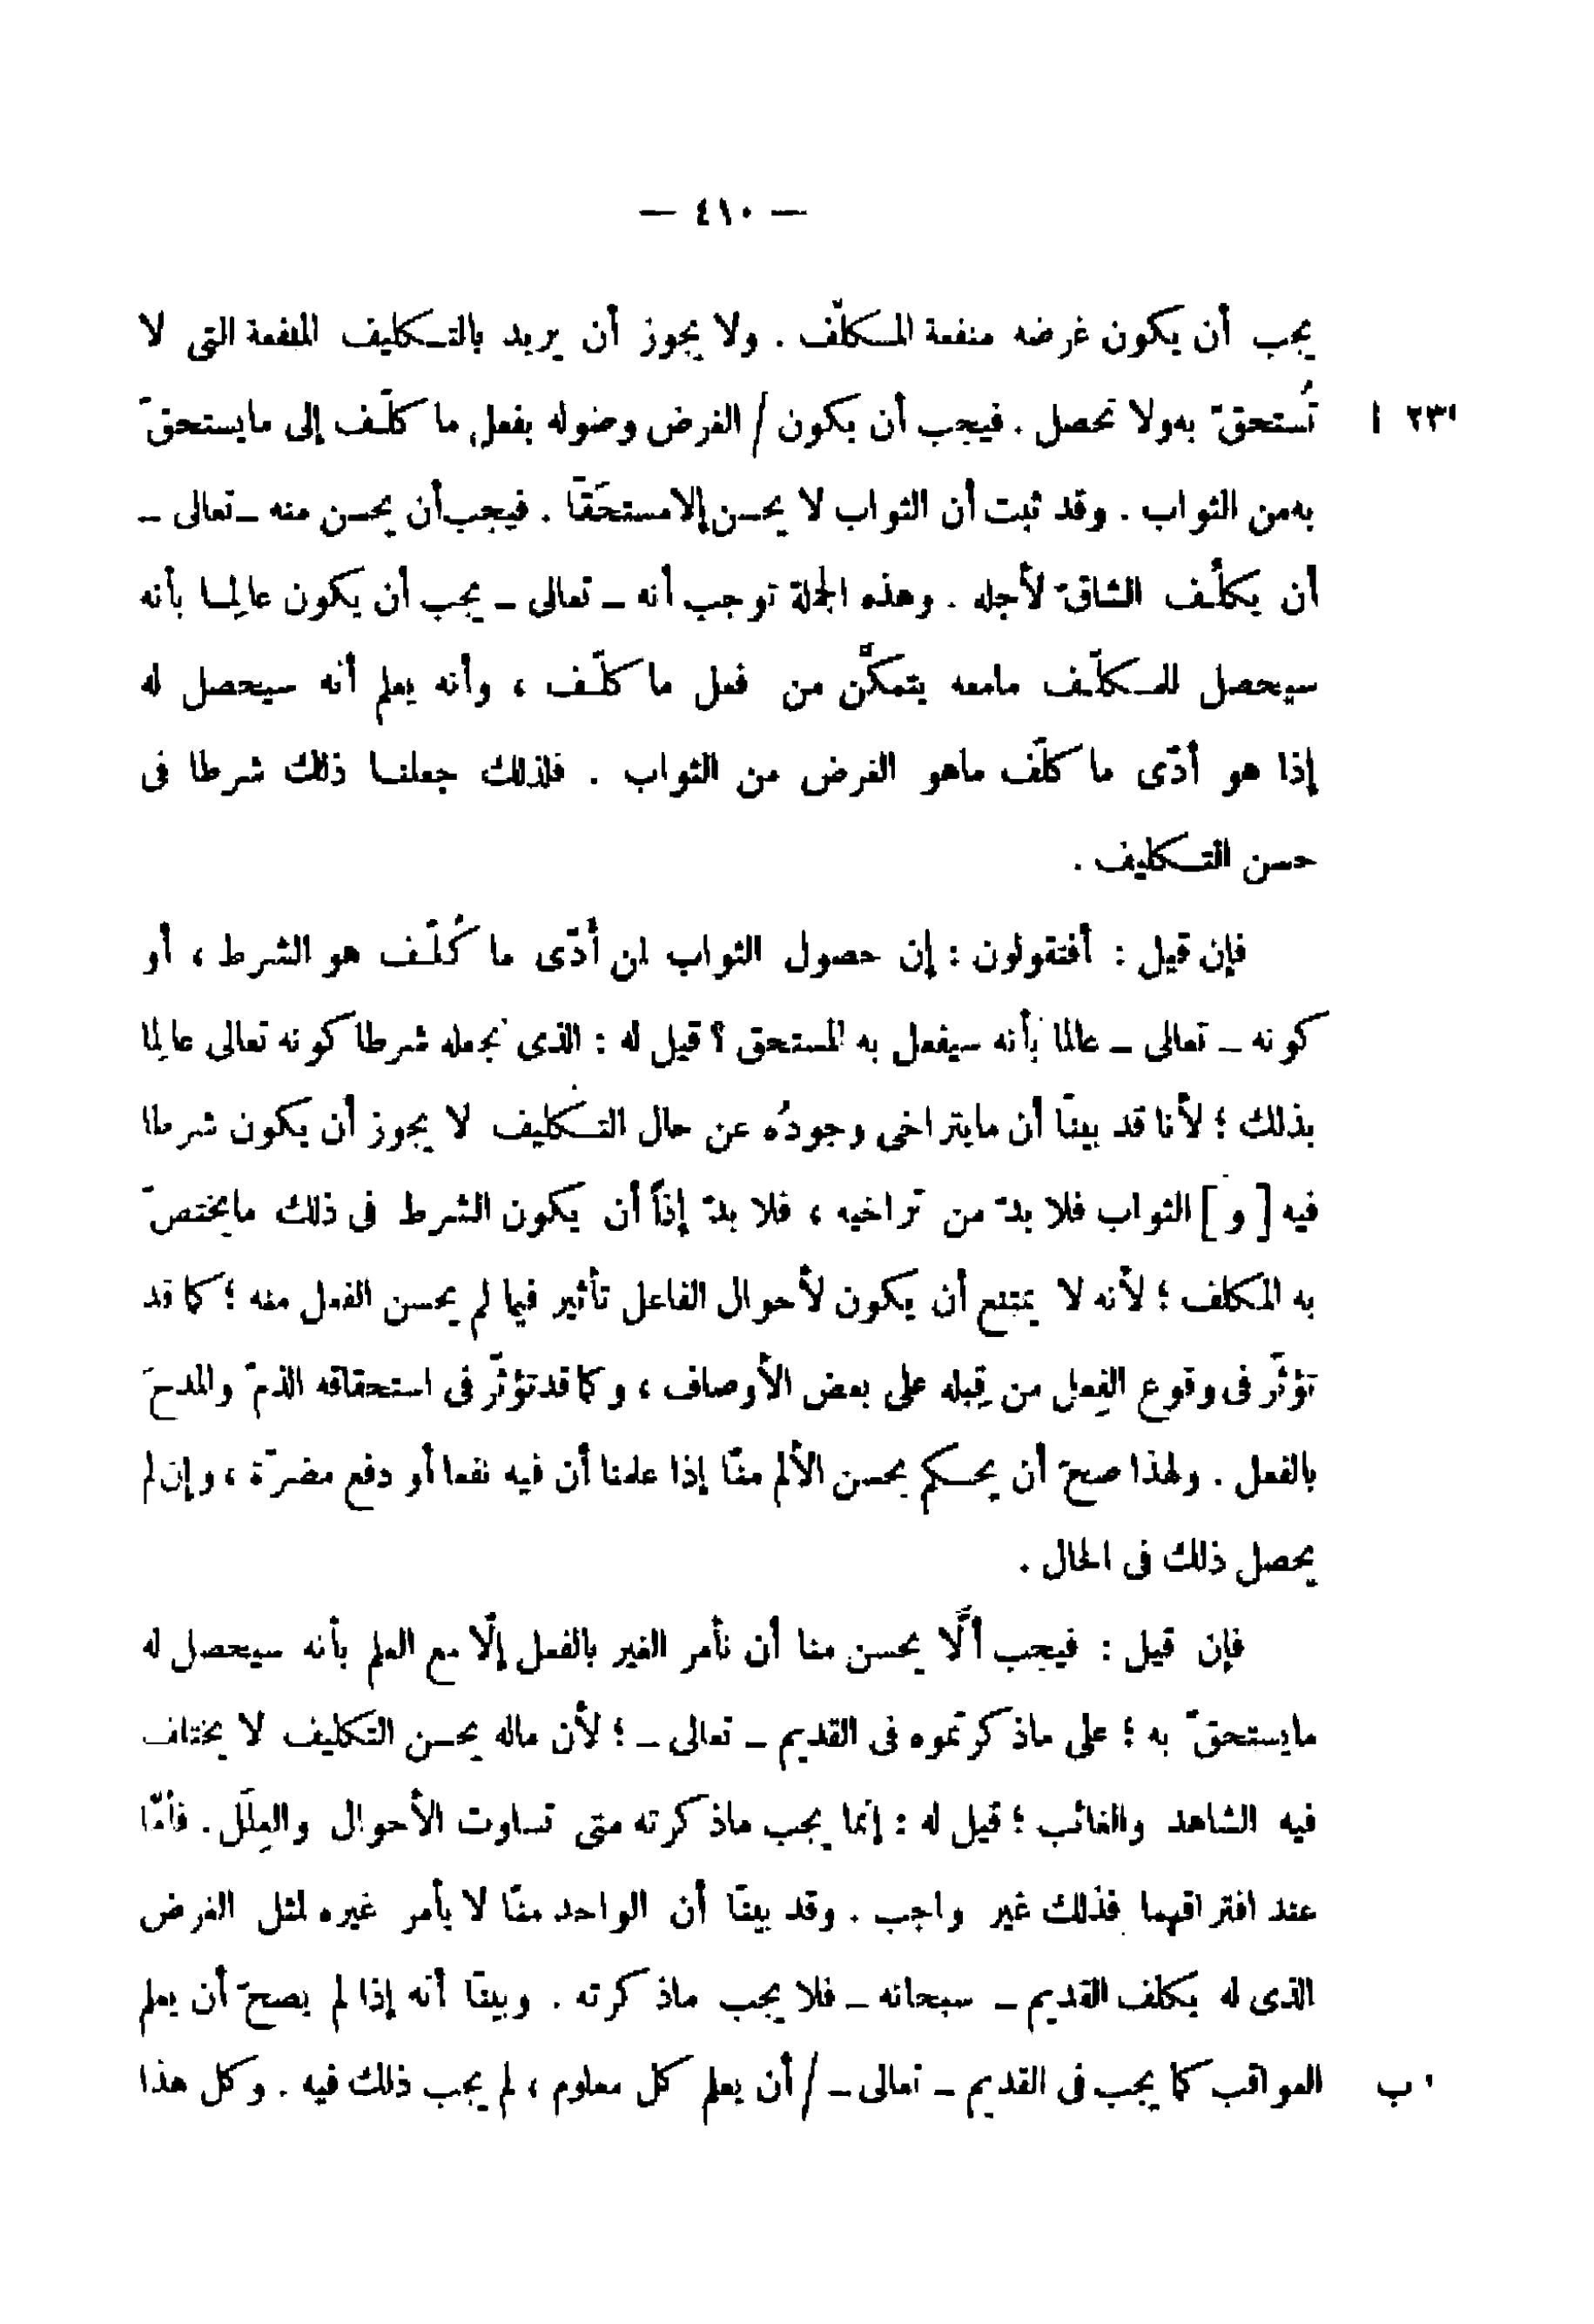 — ٤١٠ —
يجب أن يكون غرضه منفعة المكلّف . ولا يجوز أن يريد بالتكليف المنفعة التى لا
تُستحقّ به ولا تحصل . فيجب أن يكون / الغرض وصوله بفعل ما كلّف إلى ما يستحقّ
٢٣١ ا
به من الثواب . وقد ثبت أن الثواب لا يحسن إلا مستحَقّا . فيجب أن يحسن منه - تعالى -
أن يكلّف الشاقّ لأجله . وهذه الجملة توجب أنه - تعالى - يجب أن يكون عالِما بأنه
سيحصل للمكلّف ما معه يتمكّن من فعل ما كلّف ، وأنه يعلم أنه سيحصل له
إذا هو أدّى ما كلّف ماهو الغرض من الثواب . فلذلك جعلنا ذلك شرطا فى
حسن التكليف .
فإن قيل : أفتقولون : إن حصول الثواب لمن أدّى ما كُلّف هو الشرط ، أو
كونه - تعالى - عالما بأنه سيفعل به المستحق ؟ قيل له : الذى نجعله شرطا كونه تعالى عالِما
بذلك ؛ لأنا قد بينّا أن ما يتراخى وجودُه عن حال التكليف لا يجوز أن يكون شرطا
فيه [ و ] الثواب فلا بدّ من تراخيه ، فلا بدّ إذاً أن يكون الشرط فى ذلك ما يختصّ
به المكلف ؛ لأنه لا يمتنع أن يكون لأحوال الفاعل تأثير فيما لم يحسن الفعل منه ؛ كما قد
تؤثّر فى وقوع الفِعل من قِبله على بعض الأوصاف ، وكما قد تؤثّر فى استحقاقه الذمّ والمدحَ
بالفعل . ولهذا صحّ أن يحكم بحسن الألم منّا إذا علمنا أن فيه نفعا أو دفع مضرّة ، وإن لم
يحصل ذلك فى الحال .
فإن قيل : فيجب ألّا يحسن منا أن نأمر الغير بالفعل إلّا مع العلم بأنه سيحصل له
ما يستحقّ به ؛ على ماذكرتموه فى القديم - تعالى - ؛ لأن ماله يحسن التكليف لا يختلف
فيه الشاهد والغائب ؛ قيل له : إنما يجب ماذكرته متى تساوت الأحوال والعِلَل . فأمّا
عند افتراقهما فذلك غير واجب . وقد بينّا أن الواحد منّا لا يأمر غيره لمثل الغرض
الذى له يكلف القديم - سبحانه - فلا يجب ماذكرته . وبينّا أنه إذا لم يصحّ أن يعلم
العواقب كما يجب فى القديم - تعالى - / أن يعلم كل معلوم ، لم يجب ذلك فيه . وكل هذا
ب